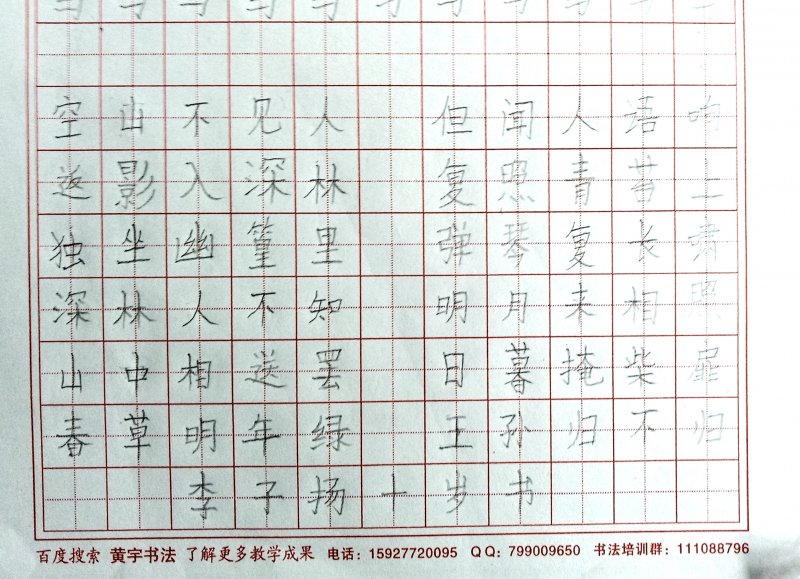 空山不见人 但闻人语响
返影入深林 复照青苔上
独坐幽篁里 弹琴复长啸
深林人不知 明月来相照
山中相送罢 日暮掩柴扉
春草明年绿 王孙归不归
李子扬十岁书
百度搜索 黄宇书法 了解更多教学成果 电话：15927720095 QQ：799009650 书法培训群：111088796